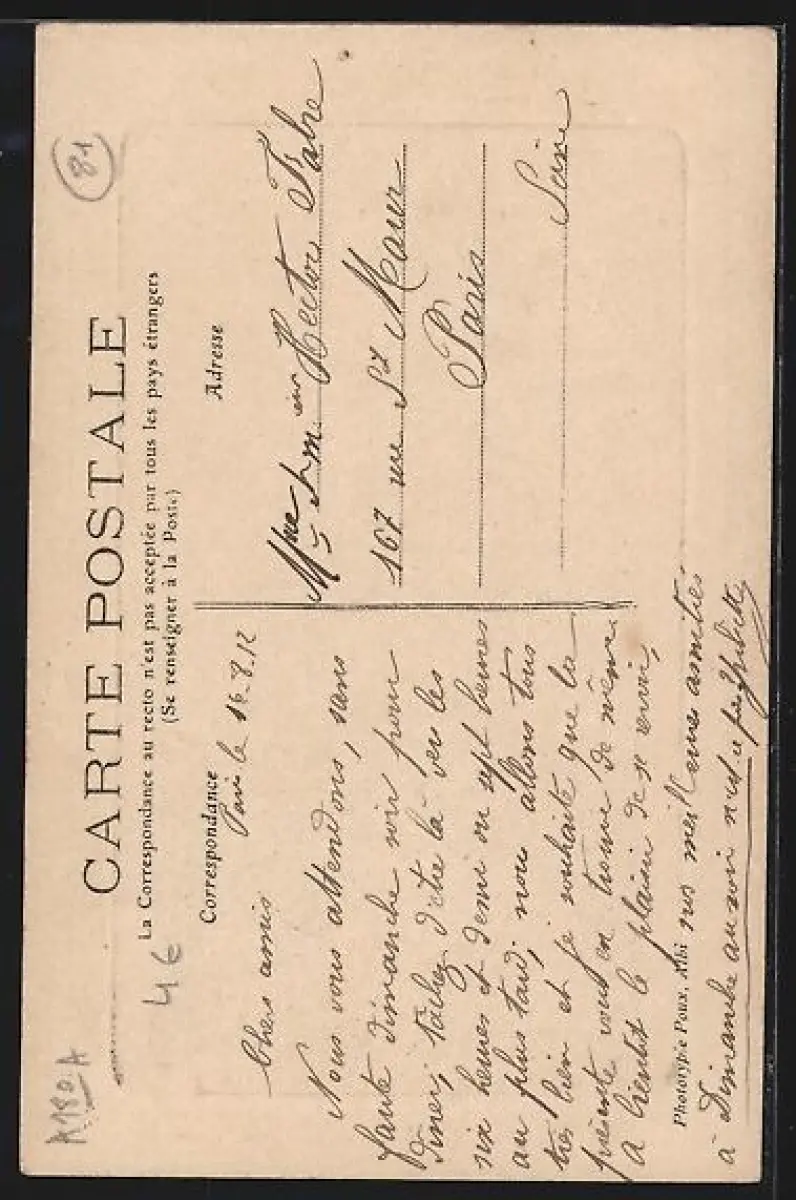 CARTE POSTALE
La Correspondance au recto n'est pas acceptée par tous les pays étrangers
(Se renseigner à la Poste)
Correspondance
Adresse
81
4€
A180A
Paris le 16.8.12
Chers amis
Nous vous attendons, sans
faute dimanche soir pour
diner; tâchez d'être là vers les
six heures et demi ou sept heures
au plus tard; nous allons tous
très bien et je souhaite que la
présente vous en trouve de même
a bientôt le plaisir de se revoir,
nos meilleures amitiés
à Dimanche au soir n'est ce pas
Mme & M. Hector Fabre
167 rue St Maur
Paris
Seine
Phototypie Poux, Albi